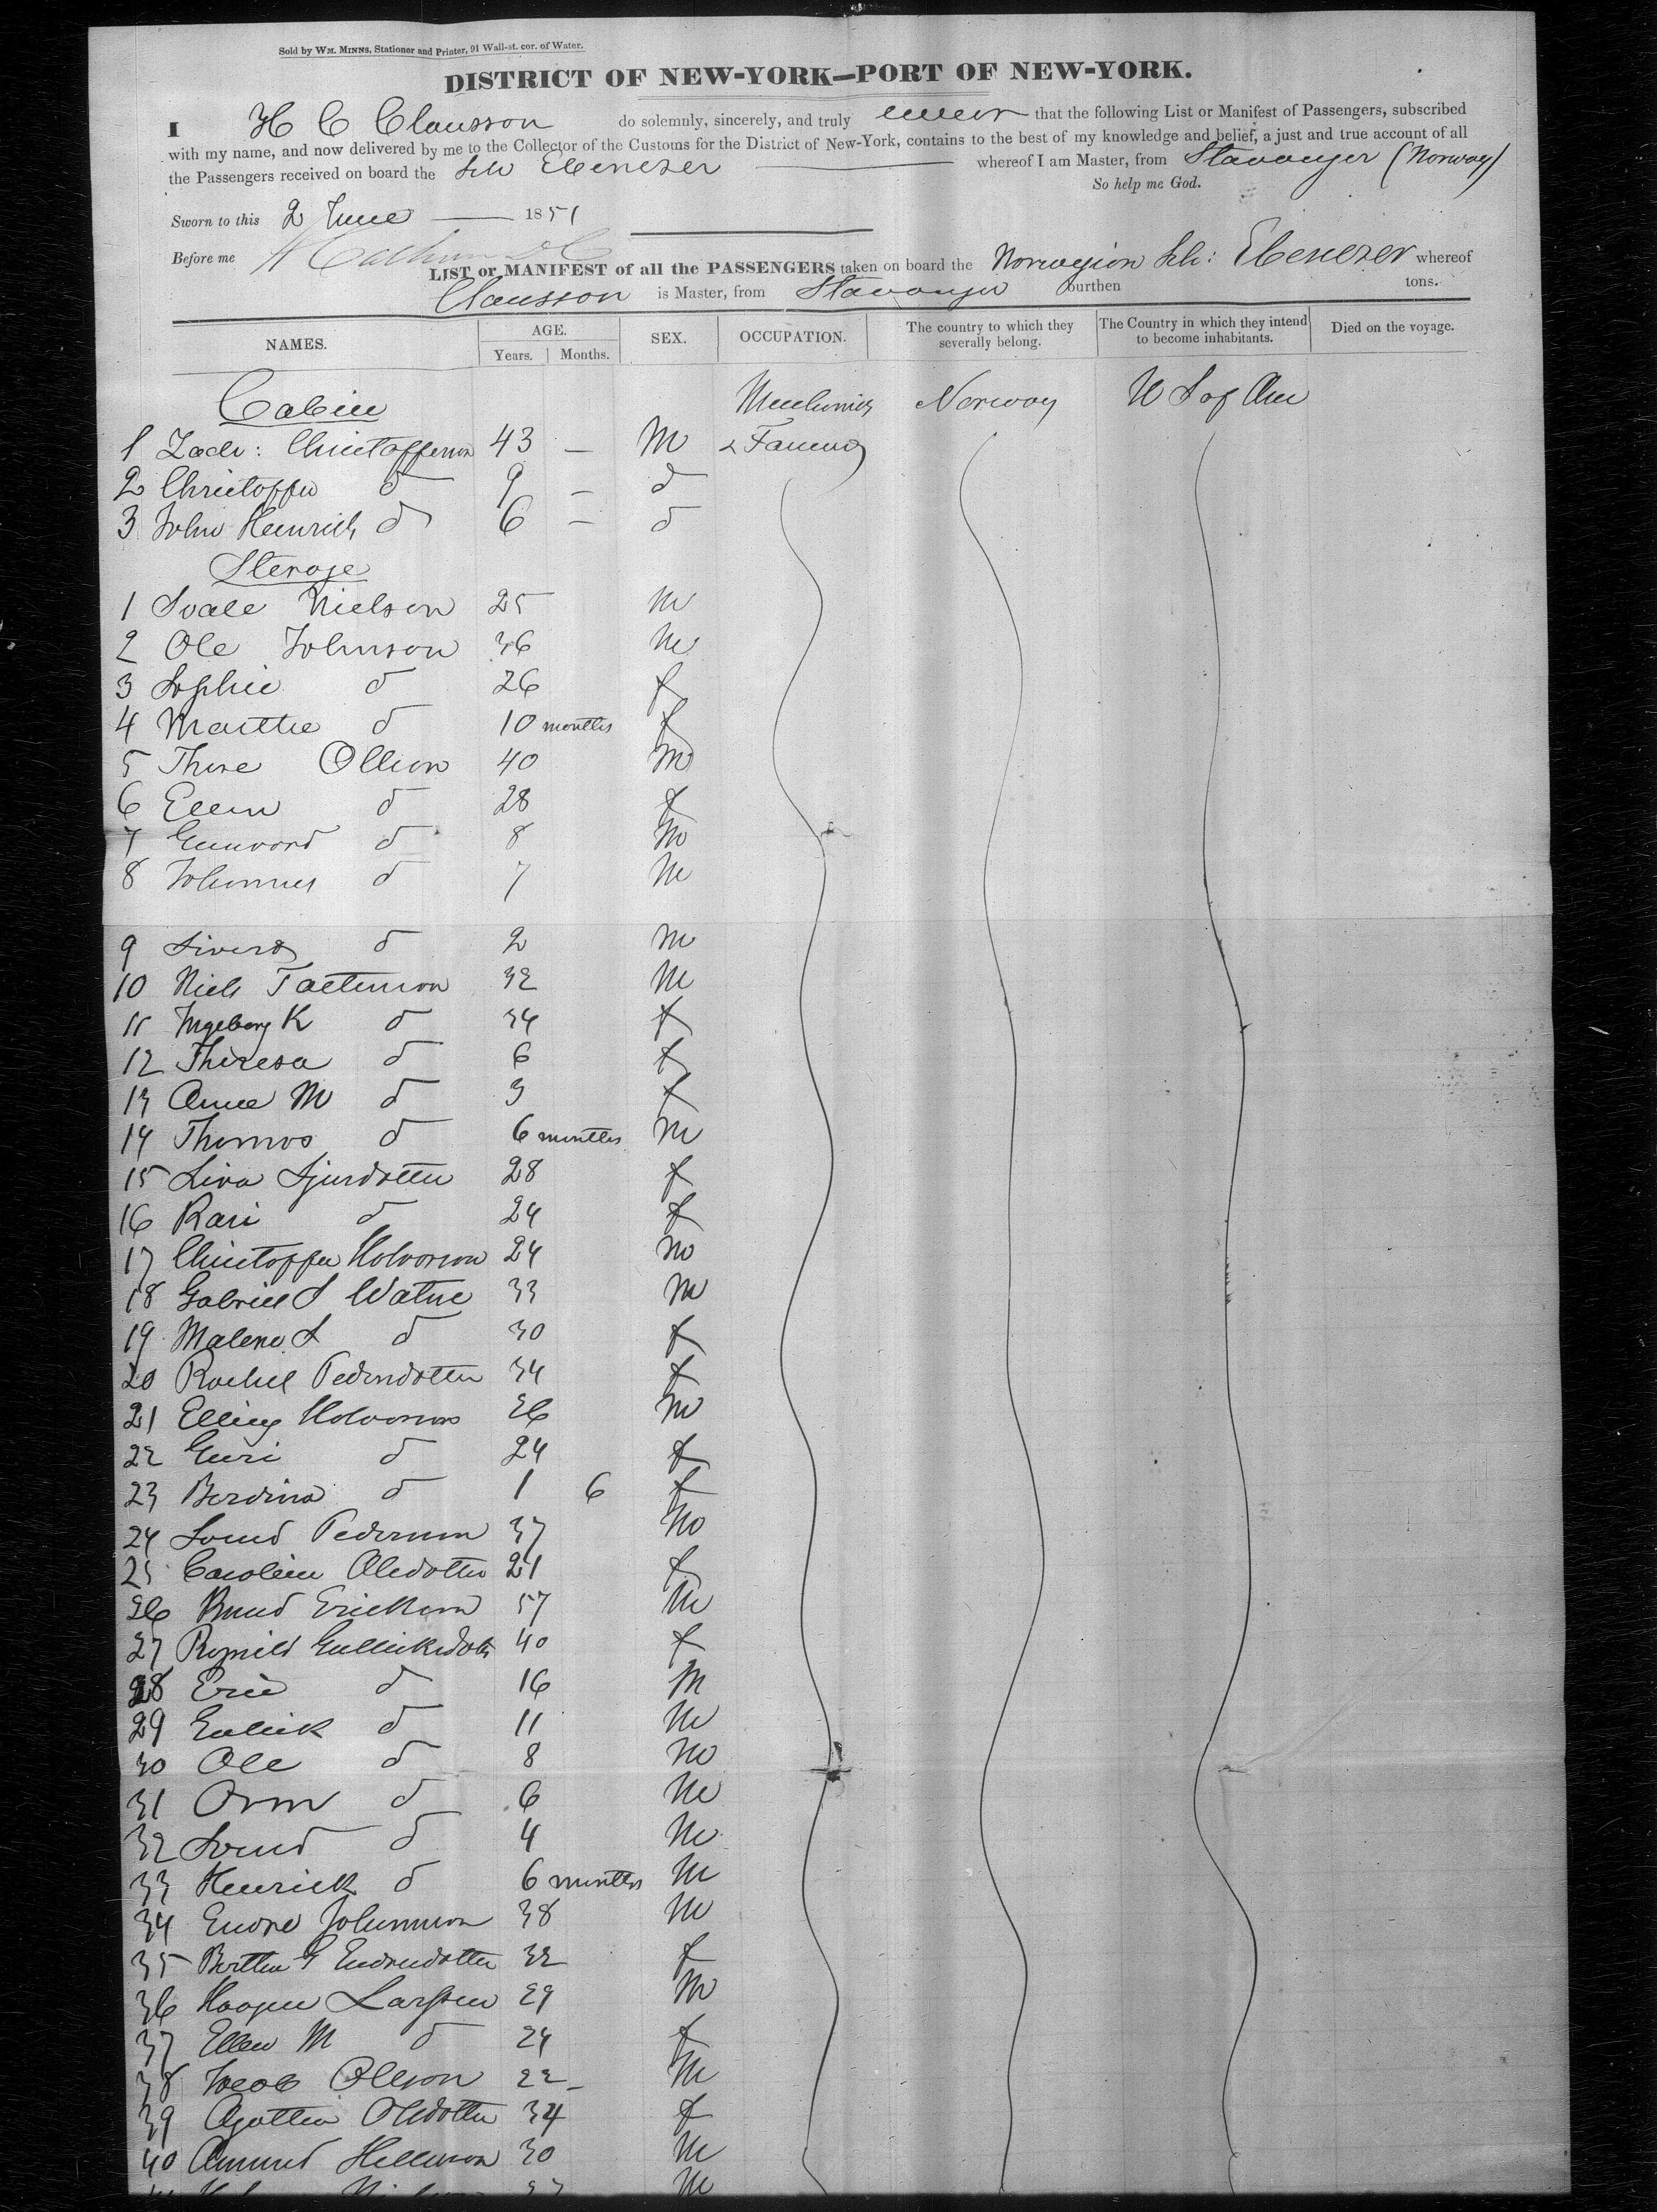 Sold by WM. MINNS, Stationer and Printer, 91 Wall-st. cor. of Water.
DISTRICT OF NEW-YORK—PORT OF NEW-YORK.
I H C Clausson do solemnly, sincerely, and truly swear that the following List or Manifest of Passengers, subscribed
with my name, and now delivered by me to the Collector of the Customs for the District of New-York, contains to the best of my knowledge and belief, a just and true account of all
the Passengers received on board the Sch Ebenezer whereof I am Master, from Stavanger (Norway)
So help me God.
Sworn to this 2 June 1851
Before me
LIST or MANIFEST of all the PASSENGERS taken on board the Norwegian Sch: Ebenezer whereof
Clausson is Master, from Stavanger burthen tons.
NAMES. AGE. Years. Months. SEX. OCCUPATION. The country to which they severally belong. The Country in which they intend to become inhabitants. Died on the voyage.
Cabin Mechanics Norway U S of Am
1 Zach: Christofferson 43 — M & Farmers
2 Christoffer do 9 — do
3 John Heinrich do 6 — do
Sterage
1 Svale Nielson 25 M
2 Ole Johnson 36 M
3 Sophie do 26 f
4 Marthe do 10 months f
5 Thore Ollson 40 M
6 Ellen do 28 f
7 Gunvord do 8 M
8 Johannes do 7 M
9 Sivert do 2 M
10 Niels 32 M
11 Ingeborg K do 34 f
12 Theresa do 6 f
13 Anne M do 3 f
14 Thomas do 6 months M
15 Siva Sjurdotter 28 f
16 Kari do 24 f
17 Christoffer Holvorson 24 M
18 Gabriel S Watne 33 M
19 Malene S do 30 f
20 Rachel Pedersdotter 34 f
21 Elling Holvorson 26 M
22 Guri do 24 f
23 Berdina do 1 6 f
24 Svend Pederson 37 M
25 Caroline Oledotter 21 f
26 Knud Erickson 57 M
27 Ragnild Gullicksdotr 40 f
28 Eric do 16 M
29 Gullick do 11 M
30 Ole do 8 M
31 Orm do 6 M
32 Svend do 4 M
33 Henrick do 6 months M
34 Endre Johnnson 38 M
35 Berthe G Endresdotter 32 f
36 Haagen Larssen 29 M
37 Ellen M do 24 f
38 Jacob Olleson 22 M
39 Agathe Olsdotter 34 f
40 Amund Hellieson 30 M